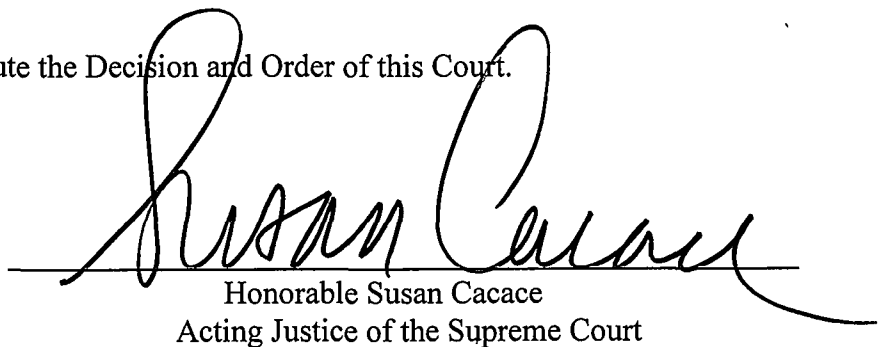 ute the Decision and Order of this Court.
Susan Cacace
Honorable Susan Cacace
Acting Justice of the Supreme Court